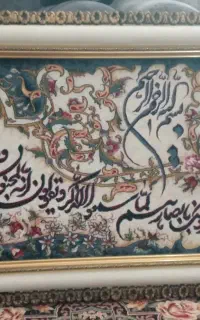 بسم الله الرحمن الرحیم
بابصارهم لما سمعوا الذکر و یقولون انه لمجنون و